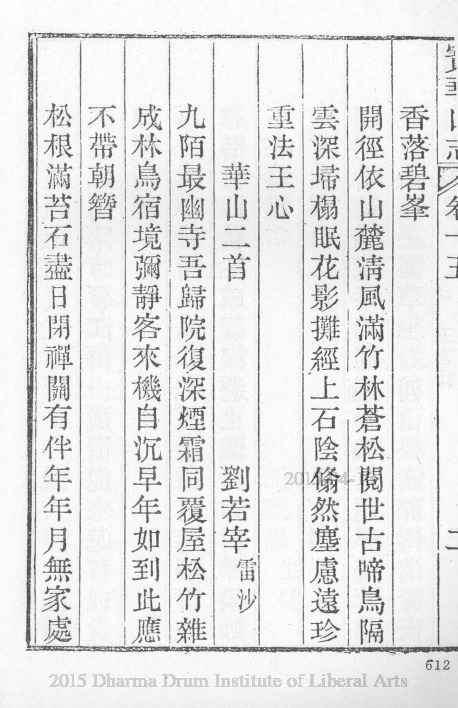 寶華山志 卷十五 二
香落碧峯
開徑依山麓清風滿竹林蒼松閱世古啼鳥隔
雲深埽榻眠花影攤經上石陰翛然塵慮遠珍
重法王心
華山二首 劉若宰 雷沙
九陌最幽寺吾歸院復深煙霜同覆屋松竹雜
成林鳥宿境彌靜客來機自沉早年如到此應
不帶朝簪
松根滿苔石盡日閉禪關有伴年年月無家處
612
2015 Dharma Drum Institute of Liberal Arts